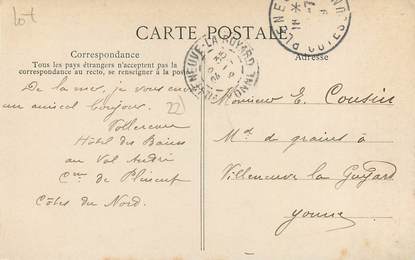 lot
CARTE POSTALE
Correspondance
Tous les pays étrangers n'acceptent pas la
correspondance au recto, se renseigner à la poste
Adresse
De la mer, je vous envoie
un amical bonjour.
22
Hôtel des Bains
au Val André
Cne de Pléneuf
Côtes du Nord.
Monsieur E. Cousin
Md de grains à
Villeneuve la Guyard
Yonne